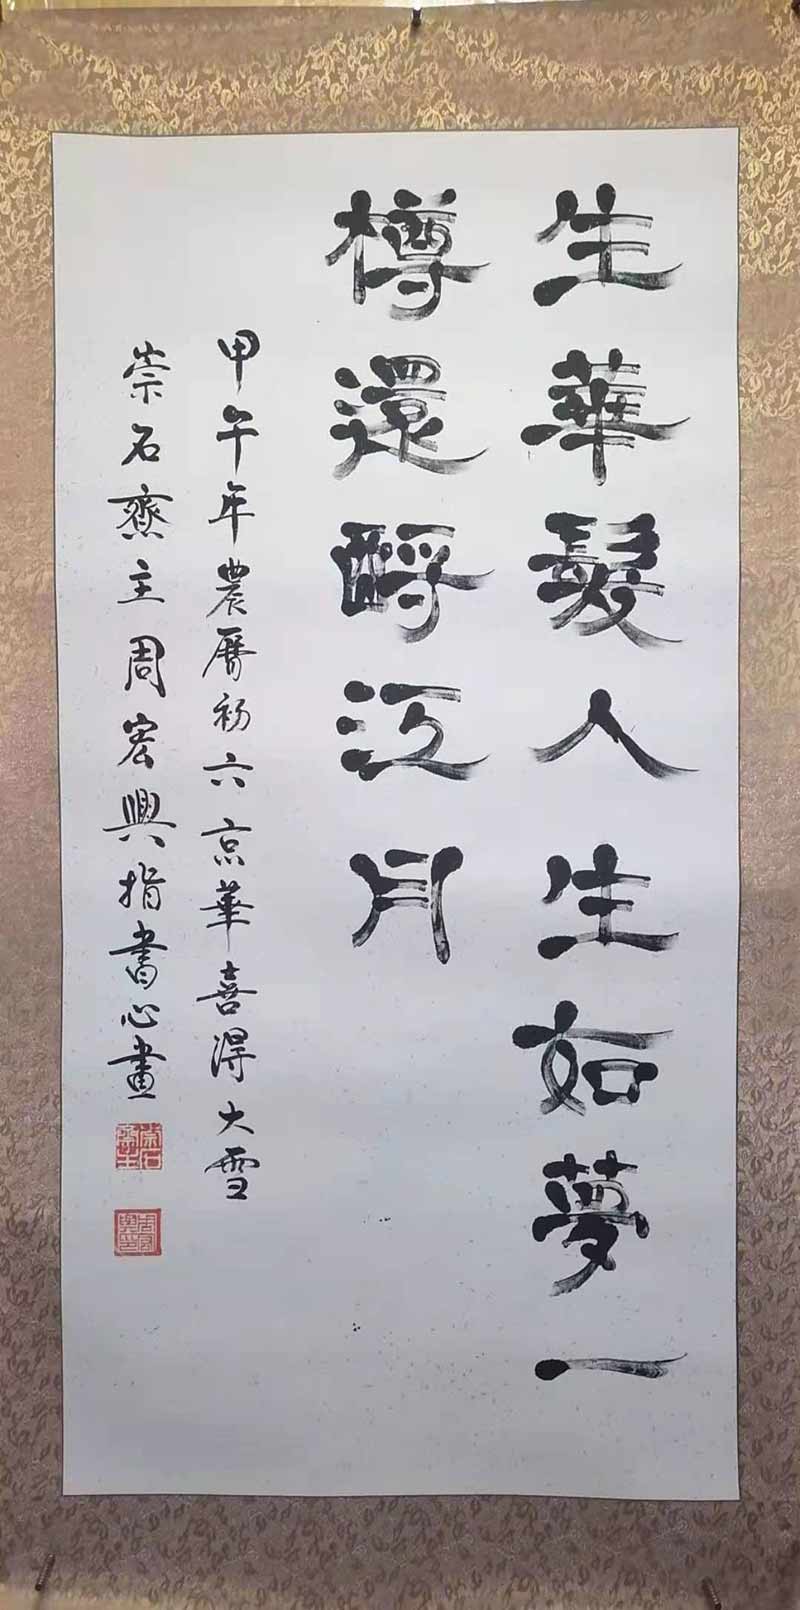 生華髮人生如夢一
樽還酹江月
甲午年農曆初六京華喜得大雪
崇石齋主周宏興指書心畫
崇石齋主
周宏興印